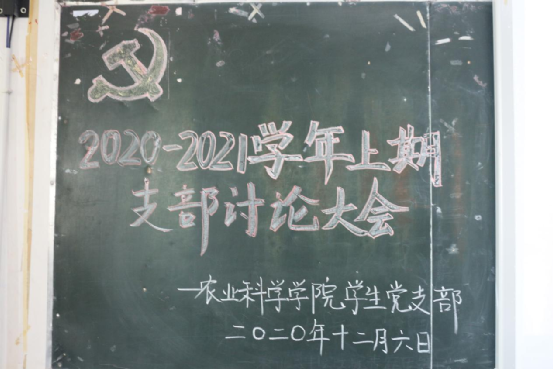 2020-2021学年上期
支部讨论大会
一农业科学学院学生党支部
二〇二〇年十二月六日